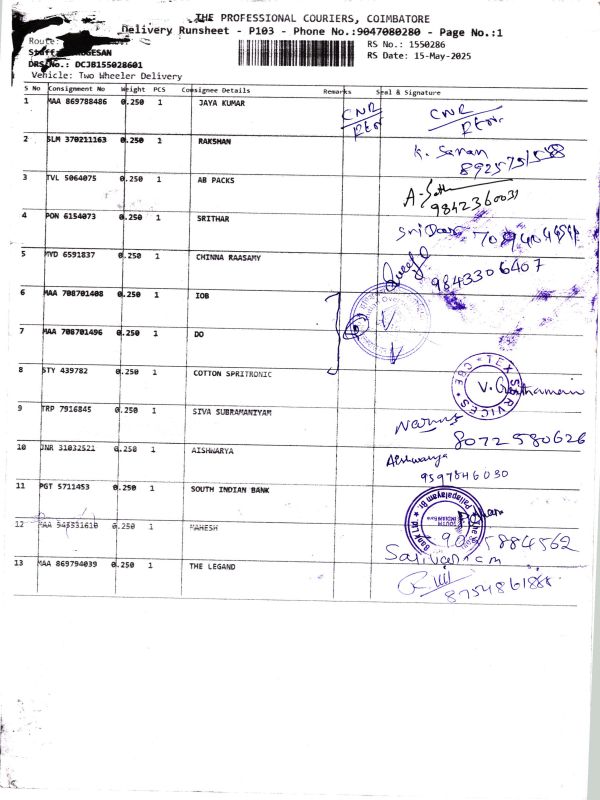 THE PROFESSIONAL COURIERS, COIMBATORE
Delivery Runsheet - P103 - Phone No.:9047080280 - Page No.:1
Route:
RS No.: 1550286
RS Date: 15-May-2025
DRS No.: DCJB155028601
Vehicle: Two Wheeler Delivery
S No Consignment No Weight PCS Consignee Details Remarks Seal & Signature
1 MAA 869788486 0.250 1 JAYA KUMAR CNR CNR
2 SLM 370211163 0.250 1 RAKSHAN K. Sanan
3 TVL 5064075 0.250 1 AB PACKS 9842360031
4 PON 6154073 0.250 1 SRITHAR
5 MYD 6591837 0.250 1 CHINNA RAASAMY 9843306407
6 MAA 708701408 0.250 1 IOB
7 MAA 708701496 0.250 1 DO
8 STY 439782 0.250 1 COTTON SPRITRONIC TEX SERVICES CBE
9 TRP 7916845 0.250 1 SIVA SUBRAMANIYAM 8072580626
10 JNR 31032521 0.250 1 AISHWARYA Aishwarya
9597846030
11 PGT 5711453 0.250 1 SOUTH INDIAN BANK
12 MAA 0.250 1 MAHESH
13 MAA 869794039 0.250 1 THE LEGAND